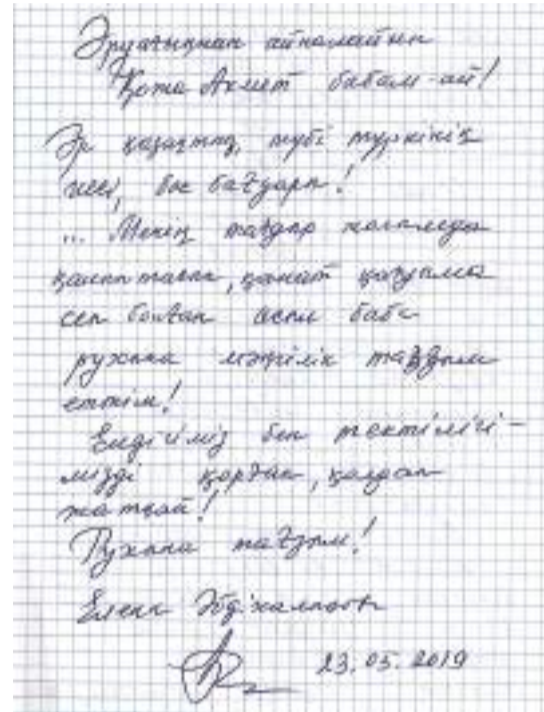 Әруағыңнан айналайын
Қожа Ахмет бабам-ай!
Әр қазақтың, түбі түркінің
иесі, бас бағдары!
... Менің тағдыр
қанат
сеп болған асыл баба
рухына мәңгілік тағзым
еттім!
Елдігіміз бен тектілігі-
мізді қорған, қолдап
жатқай!
Рухына тағзым!
Елена Әбдіхалықова
23.05.2019